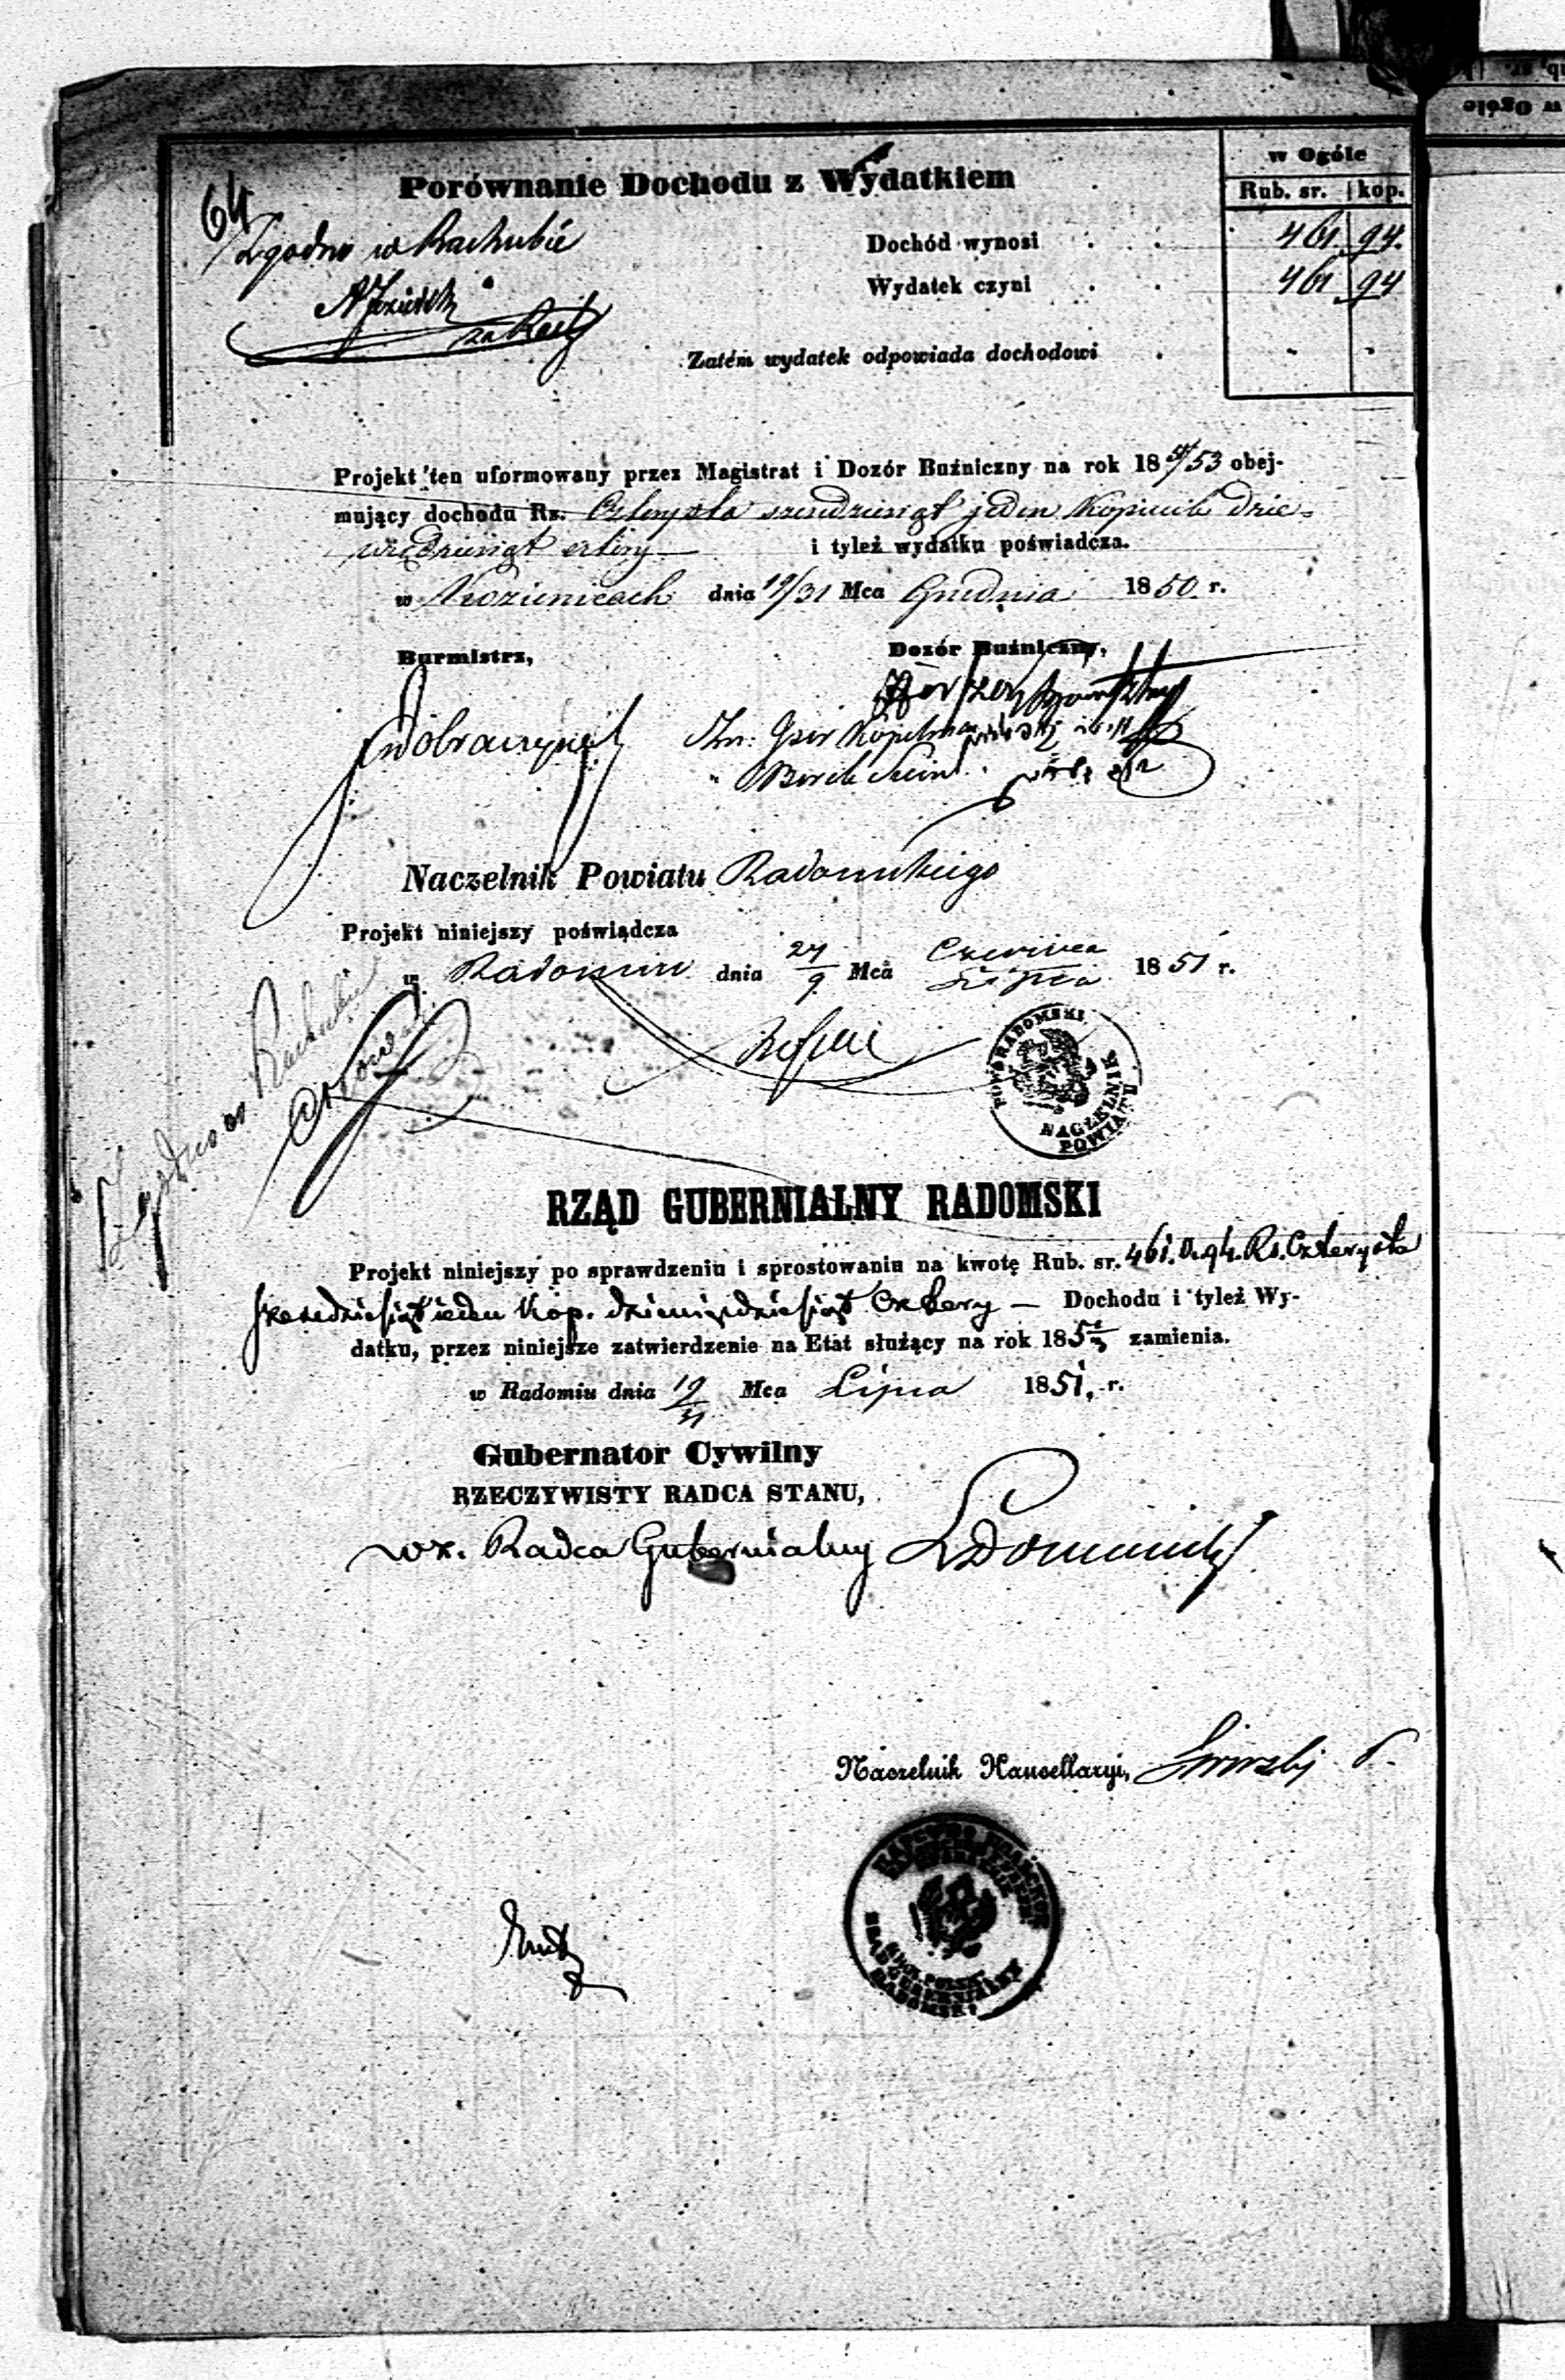 w Ogóle
Porównanie Dochodu z Wydatkiem
Rub. sr. kop.
64
Zgodno w Rachubie
Dochód wynosi 461. 94.
Wydatek czyni 461 94
Zatém wydatek odpowiada dochodowi
Projekt ten uformowany przez Magistrat i Dozór Buźniczny na rok 1851/53 obej-
mujący dochodu Rs. Czterysta szesdziesiąt jeden Kopieiek dzie-
więdziesiąt cztery — i tyleż wydatku poświadcza.
w dnia 19/31 Mca Grudnia 1850 r.
Burmistrz,
Dozór Buźniczny,
Naczelnik Powiatu Radomskiego
Projekt niniejszy poświadcza
w Radomiu dnia 27/9 Mca Czerwca/Lipca 1851 r.
Zgodno w Rachubie
POW: RADOMSKI
NACZELNIK POWIATU
RZĄD GUBERNIALNY RADOMSKI
Projekt niniejszy po sprawdzeniu i sprostowaniu na kwotę Rub. sr. 461. 94. Rs. Czterysta
szesdziesiąt ieden Kop. dziewiędziesiąt Cztery — Dochodu i tyleż Wy-
datku, przez niniejsze zatwierdzenie na Etat służący na rok 185 1/3 zamienia.
w Radomiu dnia 19/31 Mca Lipca 1851. r.
Gubernator Cywilny
RZECZYWISTY RADCA STANU,
wz. Radca Gubernialny
Naczelnik Kancellaryi,
RZĄD GUBERNIALNY
RADOMSKI